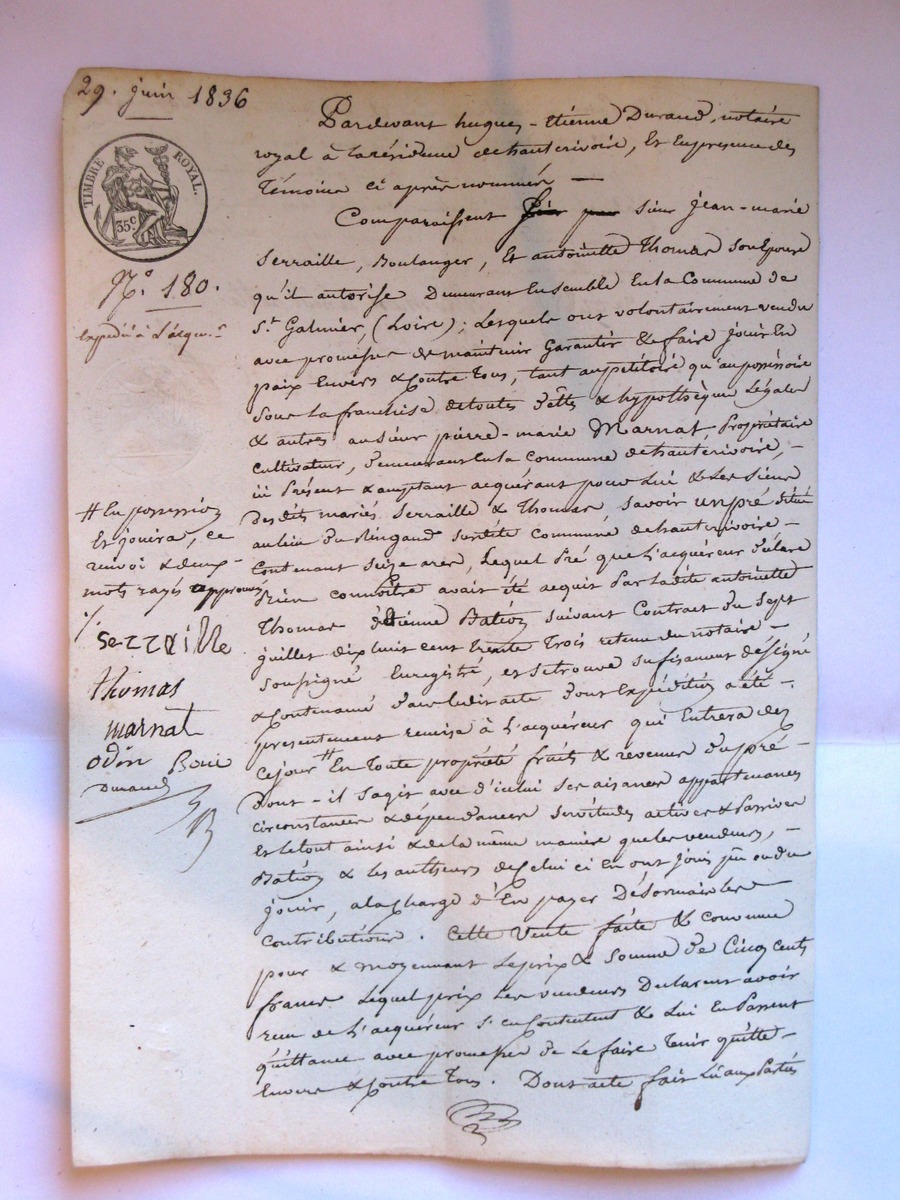 29. juin 1836
TIMBRE ROYAL.
35c
N.° 180.
expedié à l'acqu.r
Pardevant hugues-Etiénne Durand, notaire
royal à la résidence de hauterivoire, Et En presence des
Témoins ci après nommés —
Comparaissent sieur Jean-marie
Serraille, Boulanger, Et antoinette Thomas son Epouse
qu'il autorise Demeurant Ensemble En la Commune de
S.t Galmier, (Loire); Lesquels ont volontairement vendu
avec promesse de maintenir Garantir & faire jouir En
paix Envers & Contre Tous, tant au pétitoire qu'au possessoire
Sous la franchise de toutes dettes & hypothèques Légales
& autres au sieur pierre-marie Marnat, Propriétaire
cultivateur, demeurant En la Commune de hauterivoire, -
ici Présent & acceptant acquérant pour Lui & Les Siens
des dits mariés Serraille & Thomas Savoir un pré situé
au lieu du Ringand sur dite Commune de hauterivoire -
Contenant seize ares, Lequel Pré que L'acquéreur déclare
Bien connoître avait été acquit Par ladite antoinette
Thomas d'Etiénne Batiou suivant Contrat du Sept
juillet dix huit cent trente Trois retenu du notaire -
Soussigné Enregistré, et se trouve sufisament désigné
& Contenancé dans ludit acte dont Expédition a été -
presentement remise à L'acquéreur qui Entrera dès
ce jour # En Toute propriété fruits & revenus du pré -
Dont-il s'agit avec d'icelui ses aisances appartenances
circonstances & dépendances Servitudes actives & Passives
Et le tout ainsi & de la même manière que les vendeurs, -
Batiou & Les autheurs de Celui ci En ont joui pû ou du
jouir, a la charge d'En payer Désormais les
contributions. Cette Vente faite & convenue
pour & moyennant Le prix & Somme de Cinq cents
francs Lequel prix Les vendeurs Déclarent avoir
reçu de L'acquéreur s'en Contentent & Lui En Passent
quittance avec promesse de Le faire Tenir quitte -
Envers & Contre Tous. Dont acte fait Lu aux Parties
# En possession
Et jouira, ce
renvoi & deux -
mots rayés approuvés
Serraille
Thomas
marnat
odin
Durand